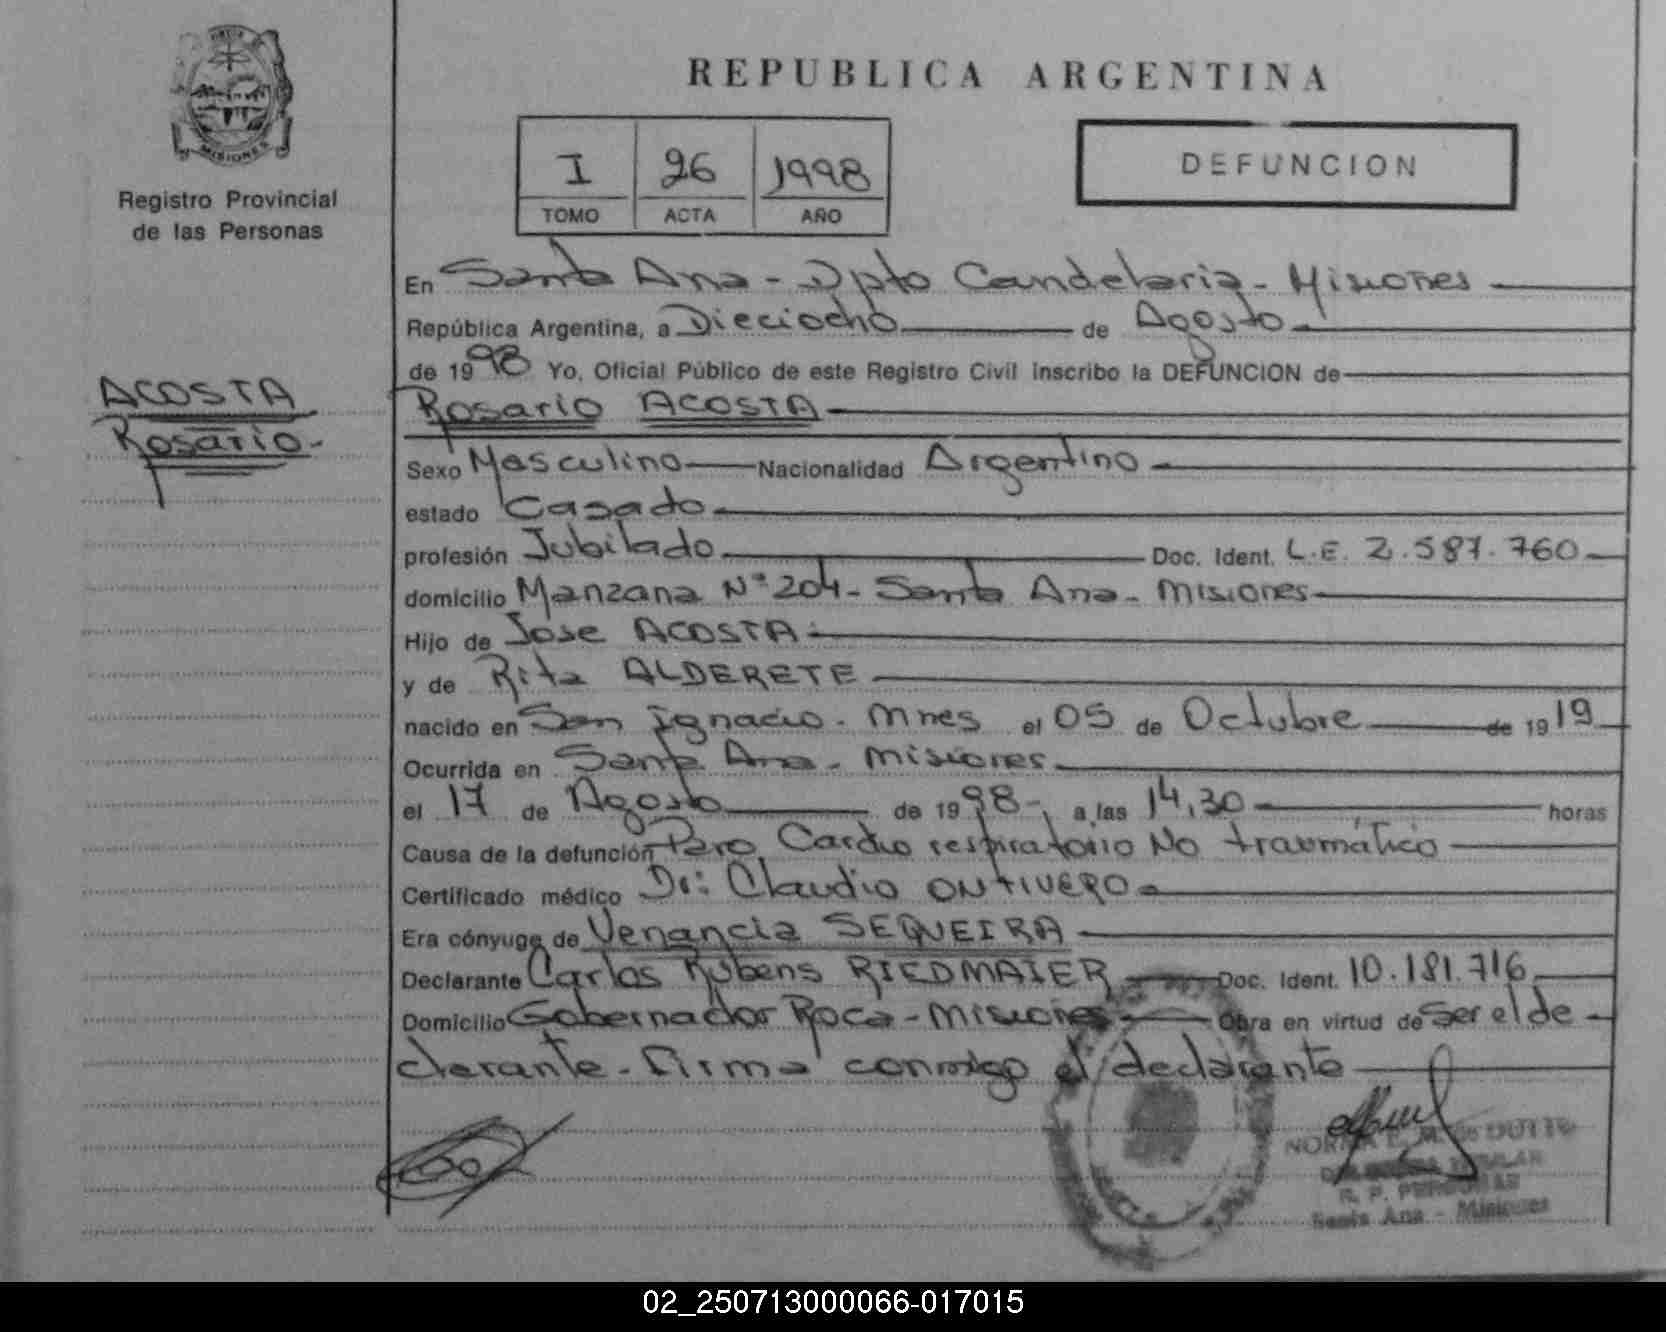 MISIONES
Registro Provincial
de las Personas
ACOSTA
Rosario-
REPUBLICA ARGENTINA
I 26 1998
TOMO ACTA AÑO
DEFUNCION
En Santa Ana - Dpto Candelaria - Misiones
República Argentina, a Dieciocho de Agosto
de 1998 Yo, Oficial Público de este Registro Civil inscribo la DEFUNCION de
Rosario ACOSTA
Sexo Masculino Nacionalidad Argentino
estado Casado
profesión Jubilado Doc. Ident. L.E. 2.587.760
domicilio Manzana Nº 204 - Santa Ana - Misiones
Hijo de Jose ACOSTA
y de Rita ALDERETE
nacido en San Ignacio - Mnes el 05 de Octubre de 1919
Ocurrida en Santa Ana - Misiones
el 17 de Agosto de 1998 - a las 14,30 horas
Causa de la defunción Paro Cardio respiratorio No traumático
Certificado médico Dr: Claudio ONTIVERO
Era cónyuge de Venancia SEQUEIRA
Declarante Carlos Rubens RIEDMAIER Doc. Ident. 10.181.716
Domicilio Gobernador Roca - Misiones Obra en virtud de Ser el de
clarante - Firma conmigo el declarante
NORMA E. M. de DUTTO
TITULAR
R. P. PERSONAS
Santa Ana - Misiones
02_250713000066-017015